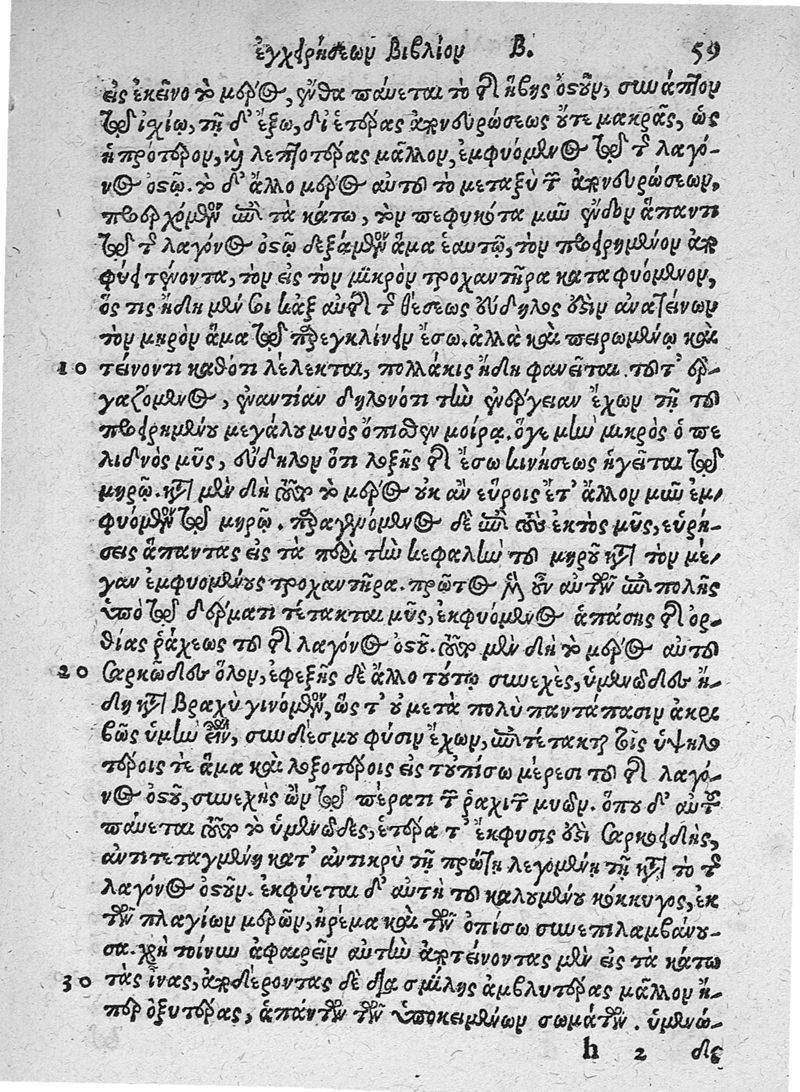 ἐγχειρήσεων Βιβλίον Β. 59
εἰς ἐκεῖνο τὸ μέρος, ἔνθα παύεται τὸ τῆς ἥβης ὀστοῦν, συνάπτον
τῷ ἰσχίῳ, τῇ δ᾽ ἔξω, δι᾽ ἑτέρας ἀπονευρώσεως οὔτε μακρᾶς, ὡς
ἡ πρότερον, καὶ λεπτοτέρας μᾶλλον, ἐμφυόμενος τῷ τῆς λαγό-
νος ὀστῷ. τὸ δ᾽ ἄλλο μέρος αὐτοῦ τὸ μεταξὺ τῶν ἀπονευρώσεων,
προερχόμενον ἐπὶ τὰ κάτω, τὸν πεφυκότα μῦν ἔνδον ἅπαντι
τῷ τῆς λαγόνος ὀστῷ δεξάμενον ἅμα ἑαυτῷ, τὸν προειρημένον ἀπο
φύει τένοντα, τὸν εἰς τὸν μικρὸν τροχαντῆρα καταφυόμενον,
ὅς τις ἤδη μέν σοι κἀξ αὐτῆς τῆς θέσεως εὔδηλός ἐστιν ἀνατείνων
τὸν μηρὸν ἅμα τῷ παρεγκλίνειν ἔσω. ἀλλὰ καὶ πειρωμένῳ καὶ
10 τείνοντι καθότι λέλεκται, πολλάκις ἤδη φανεῖται τοῦτ᾽ ἐρ-
γαζόμενος, ἐναντίαν δηλονότι τὴν ἐνέργειαν ἔχων τῇ τοῦ
προειρημένου μεγάλου μυὸς ὄπισθεν μοίρᾳ. ὅγε μὴν μικρὸς ὁ πε
λιδνὸς μῦς, εὔδηλον ὅτι λοξῆς τῆς ἔσω κινήσεως ἡγεῖται τῷ
μηρῷ. κατὰ μὲν δὴ τοῦτο τὸ μέρος οὐκ ἂν εὕροις ἔτ᾽ ἄλλον μῦν ἐμ-
φυόμενον τῷ μηρῷ. παραγενόμενος δὲ ἐπὶ τοὺς ἐκτὸς μῦς, εὑρή-
σεις ἅπαντας εἰς τὰ περὶ τὴν κεφαλὴν τοῦ μηροῦ κατὰ τὸν μέ-
γαν ἐμφυομένους τροχαντῆρα. πρῶτος μὲν οὖν αὐτῶν ἐπιπολῆς
ὑπὸ τῷ δέρματι τέτακται μῦς, ἐκφυόμενος ἁπάσης τῆς ὀρ-
θίας ῥάχεως τοῦ τῆς λαγόνος ὀστοῦ. τοῦτο μὲν δὴ τὸ μέρος αὐτοῦ
20 σαρκῶδές ἐστιν ὅλον, ἐφεξῆς δὲ ἄλλο τούτῳ συνεχὲς, ὑμενῶδές ἐστιν ἤ-
δη κατὰ βραχὺ γινόμενον, ὥς τ᾽ οὐ μετὰ πολὺ παντάπασιν ἀκρι
βῶς ὑμὴν εἶναι, συνδέσμου φύσιν ἔχων, ἐπιτέτακται τοῖς ὑψηλο
τέροις τε ἅμα καὶ λοξοτέροις εἰς τοὐπίσω μέρεσι τοῦ τῆς λαγό-
νος ὀστοῦ, συνεχὴς ὢν τῷ πέρατι τῶν ῥαχιτῶν μυῶν. ὅπου δ᾽ αὐτοῦ
παύεται τοῦτο τὸ ὑμενῶδες, ἑτέρα τ᾽ ἔκφυσις ἐστὶ σαρκοειδὴς,
ἀντιτεταγμένη κατ᾽ ἀντικρὺ τῇ πρώτῃ λεγομένῃ τῇ κατὰ τὸ τῆς
λαγόνος ὀστοῦν. ἐκφύεται δ᾽ αὐτὴ τοῦ καλουμένου κόκκυγος, ἐκ
τῶν πλαγίων μερῶν, ἠρέμα καὶ τῶν ὀπίσω συνεπιλαμβάνου-
σα. χρὴ τοίνυν ἀφαιρεῖν αὐτὴν ἀποτείνοντας μὲν εἰς τὰ κάτω
30 τὰς ἶνας, ἀποδέροντας δὲ διὰ σμίλης ἀμβλυτέρας μᾶλλον ἤ-
περ ὀξυτέρας, ἁπάντων τῶν ὑποκειμένων σωμάτων. ὑμενώ-
h 2 δες